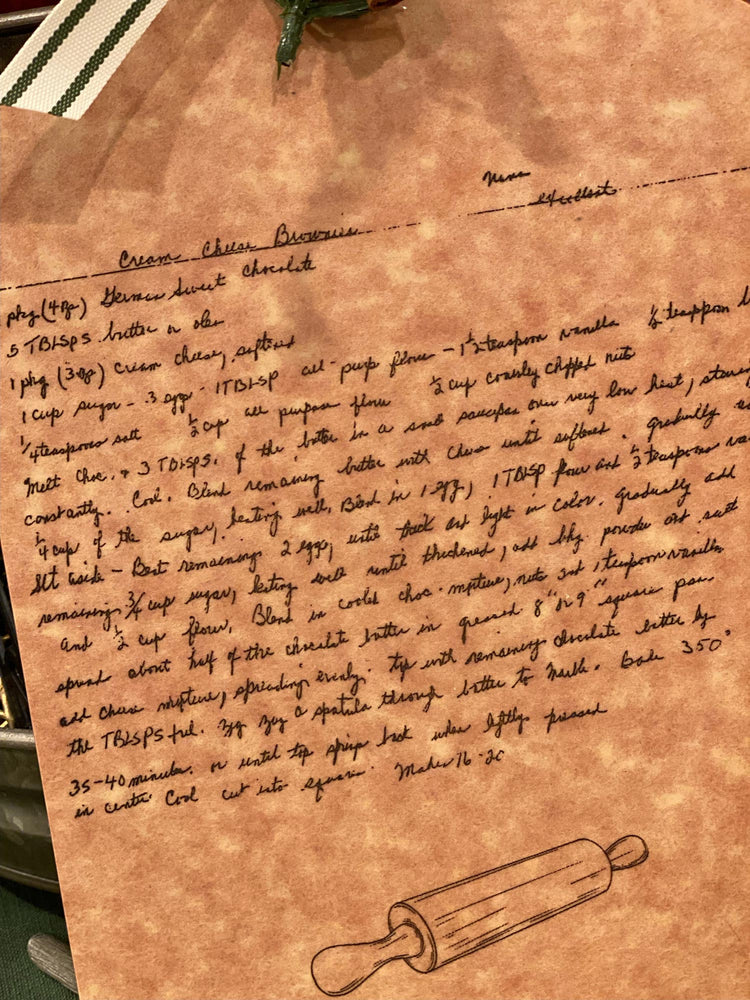 Nana
excellent
Cream Cheese Brownies
pkg (4oz) German Sweet Chocolate
5 TBLSPS butter or oleo
1 pkg (3oz) cream cheese, softened
1 cup sugar - 3 eggs - 1TBLSP all-purp flour - 1 1/2 teaspoon vanilla 1/2 teasppoon b
1/4 teaspoons salt 1/2 cup all purpose flour 1/2 cup coarsly chopped nuts
Melt Choc. & 3 TBLSPS. of the butter in a small saucepan over very low heat, stirring
constantly. Cool. Blend remaining butter with cheese until softened. gradually
1/4 cup of the sugar, beating well. Blend in 1 egg, 1 TBLSP flour and 1/2 teaspoons va
Set aside - Beat remaining 2 eggs, until thick and light in color. gradually add
remaining 3/4 cup sugar, beating well until thickened, add bkg. powder and salt
and 1/2 cup flour. Blend in cooled choc. mixture, nuts and 1 teaspoon vanilla
spread about half of the chocolate batter in greased 8" or 9" square pan
add cheese mixture, spreading evenly. top with remaining chocolate batter by
the TBLSPS ful. Zig Zag a spatula through batter to marble. bake 350°
35-40 minutes. or until top springs back when lightly pressed
in center Cool cut into squares. Makes 16-20